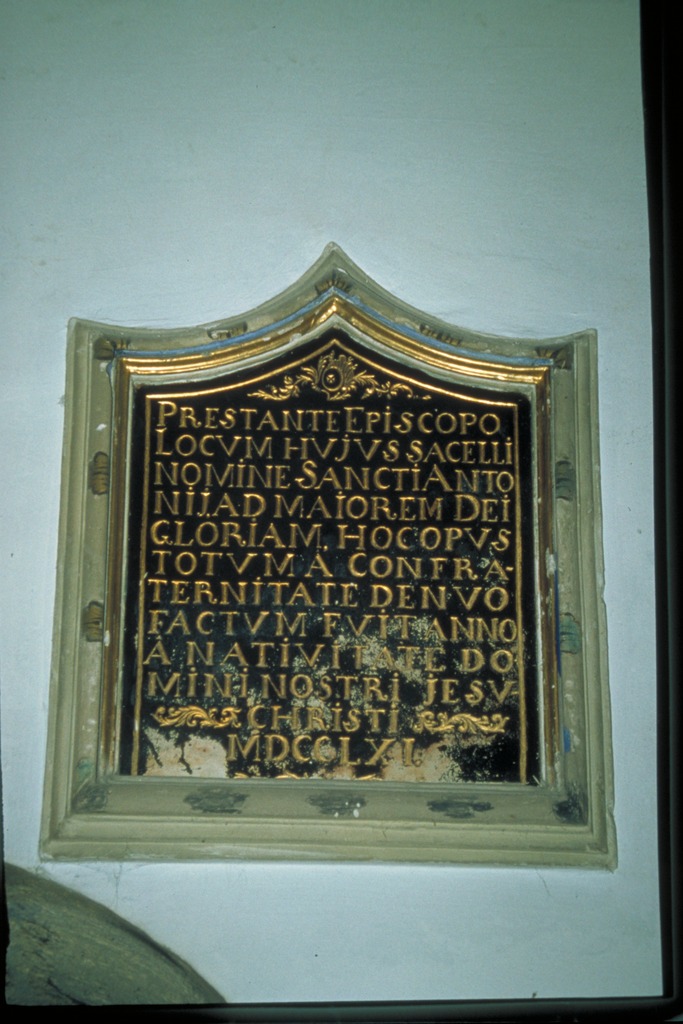 PRESTANTE EPISCOPO
LOCVM HVJVS SACELLI
NOMINE SANCTI ANTO
NIJ. AD MAIOREM DEI
GLORIAM, HOC OPVS
TOTVM A CONFRA-
TERNITATE DENVO
FACTVM FVIT ANNO
A NATIVITATE DO
MINI NOSTRI JESV
CHRISTI
MDCCLXI.